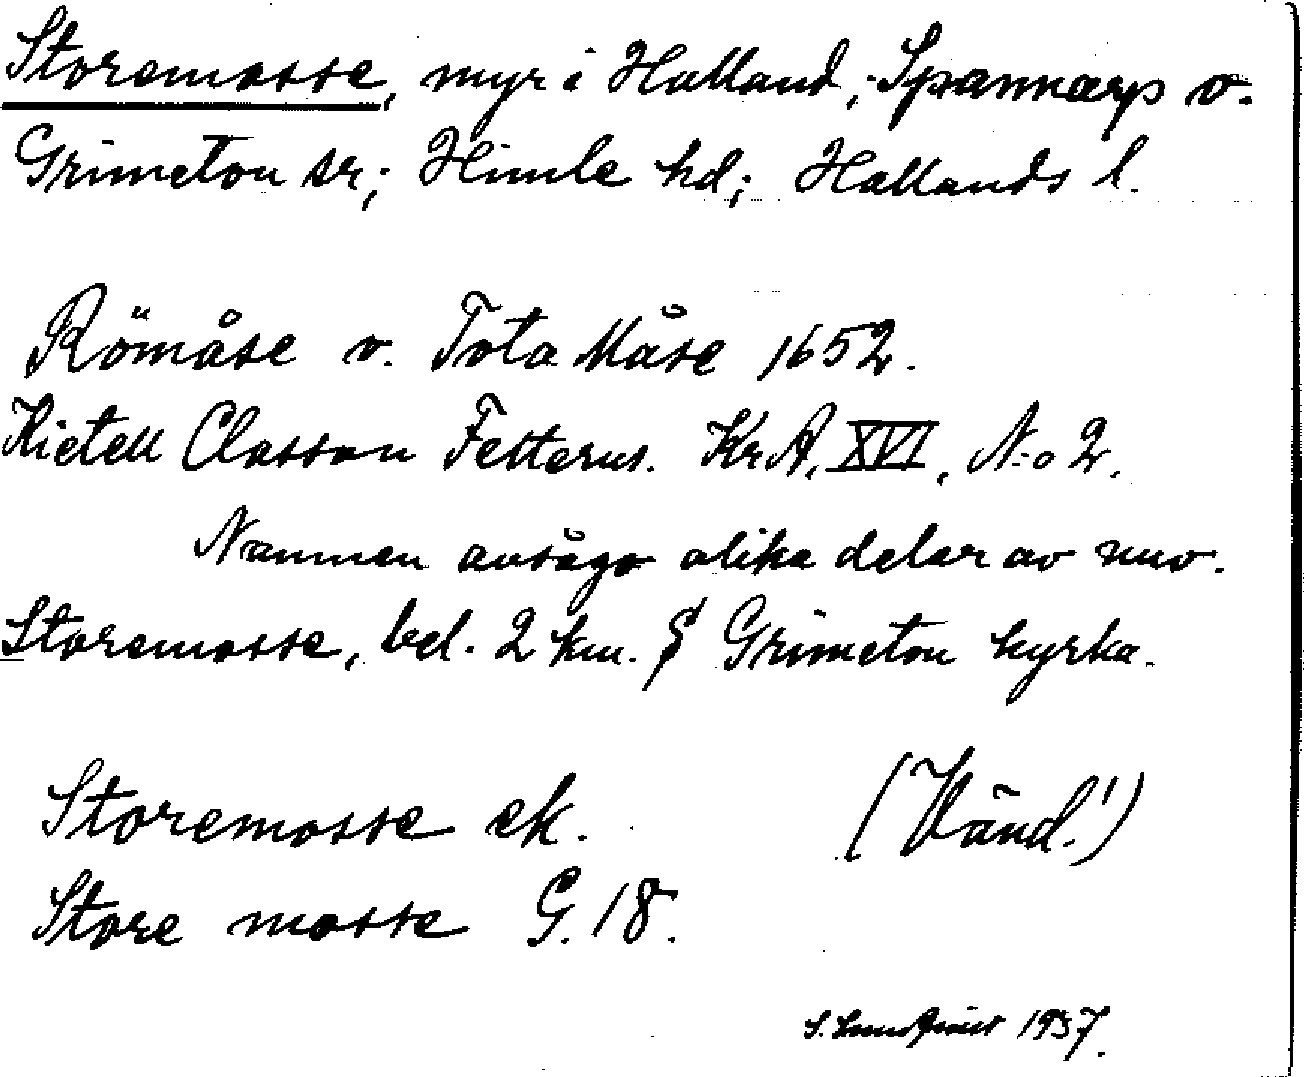 Storemosse, myr i Halland, Spannarp o.
Grimeton sr; Himle hd; Hallands l.
Römåse o. Tota Måse 1652.
Kietell Classon Felterus. KrA, XVI, N:o 2.
Namnen avsågo olika delar av nuv.
Storemosse, bel. 2 km. S Grimeton kyrka.
Storemosse ek. (Vänd!)
Store mosse G. 18.
S. Lundquist 1937.